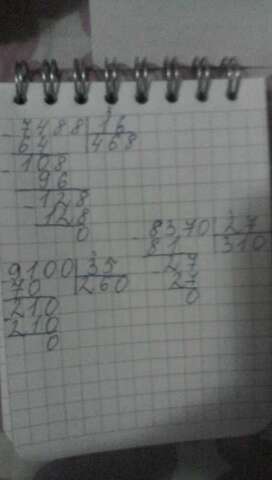 7488 16
64 468
108
96
128
128
0
8370 27
81 310
27
27
0
9100 35
70 260
210
210
0